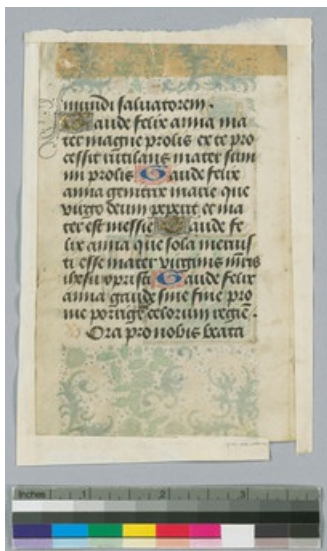 mundi saluatorem.
Gaude felix anna ma
ter magne prolis ex te pro
cessit rutilans mater sum
mi prolis Gaude felix
anna genitrix marie que
virgo deum peperit et ma
ter est messie Gaude fe
lix anna que sola meruis
ti esse mater virginis mr̄is
ihesu xp̄risti Gaude felix
anna gaude sine fine pro
me porrige celorum regiē.
Ora pro nobis beata
Inches 1 2 3